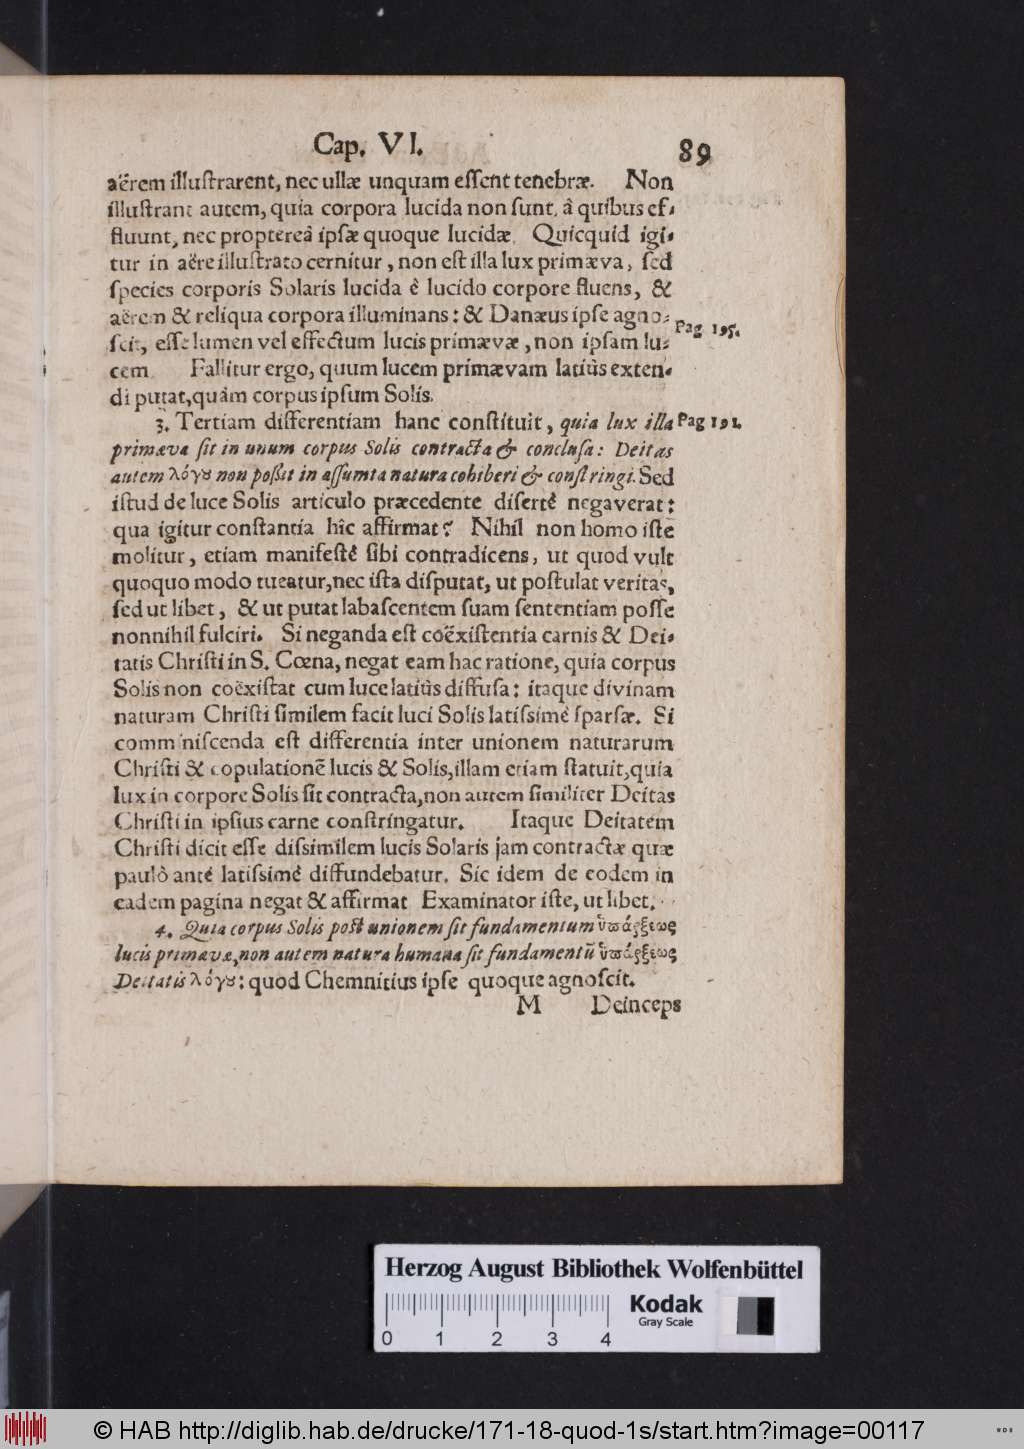 Cap. VI. 89
aërem illuſtrarent, nec ullæ unquam eſſent tenebræ. Non
illuſtrant autem, quia corpora lucida non ſunt, â quibus ef-
fluunt, nec proptereâ ipſæ quoque lucidæ. Quicquid igi-
tur in aëre illuſtrato cernitur, non eſt illa lux primæva, ſed
ſpecies corporis Solaris lucida è lucido corpore fluens, &
aërem & reliqua corpora illuminans: & Danæus ipſe agno-
ſcit, eſſe lumen vel effectum lucis primævæ, non ipſam lu-
Pag 195.
cem. Fallitur ergo, quum lucem primævam latiùs exten-
di putat, quàm corpus ipſum Solis.
3. Tertiam differentiam hanc conſtituit, quia lux illa
Pag 191.
primæva ſit in unum corpus Solis contracta & concluſa: Deitas
autem λόγȣ non poßit in aſſumta natura cohiberi & conſtringi. Sed
iſtud de luce Solis articulo præcedente diſertè negaverat:
qua igitur conſtantia hîc affirmat? Nihil non homo iſte
molitur, etiam manifeſtè ſibi contradicens, ut quod vult
quoquo modo tueatur, nec iſta diſputat, ut poſtulat veritas,
ſed ut libet, & ut putat labaſcentem ſuam ſententiam poſſe
nonnihil fulciri. Si neganda eſt coëxiſtentia carnis & Dei-
tatis Chriſti in S. Cœna, negat eam hac ratione, quia corpus
Solis non coëxiſtat cum luce latiùs diffuſa: itaque divinam
naturam Chriſti ſimilem facit luci Solis latiſsimè ſparſæ. Si
comminiſcenda eſt differentia inter unionem naturarum
Chriſti & copulationē lucis & Solis, illam etiam ſtatuit, quia
lux in corpore Solis ſit contracta, non autem ſimiliter Deitas
Chriſti in ipſius carne conſtringatur. Itaque Deitatem
Chriſti dicit eſſe diſsimilem lucis Solaris jam contractæ quæ
paulò antè latiſsimè diffundebatur. Sic idem de eodem in
eadem pagina negat & affirmat Examinator iſte, ut libet.
4. Quia corpus Solis poſt unionem ſit fundamentum ὑπάρξεως
lucis primævæ, non autem natura humana ſit fundamentū ὑπάρξεως
Deitatis λόγȣ: quod Chemnitius ipſe quoque agnoſcit.
M Deinceps
Herzog August Bibliothek Wolfenbüttel
0 1 2 3 4
Kodak
Gray Scale
© HAB http://diglib.hab.de/drucke/171-18-quod-1s/start.htm?image=00117